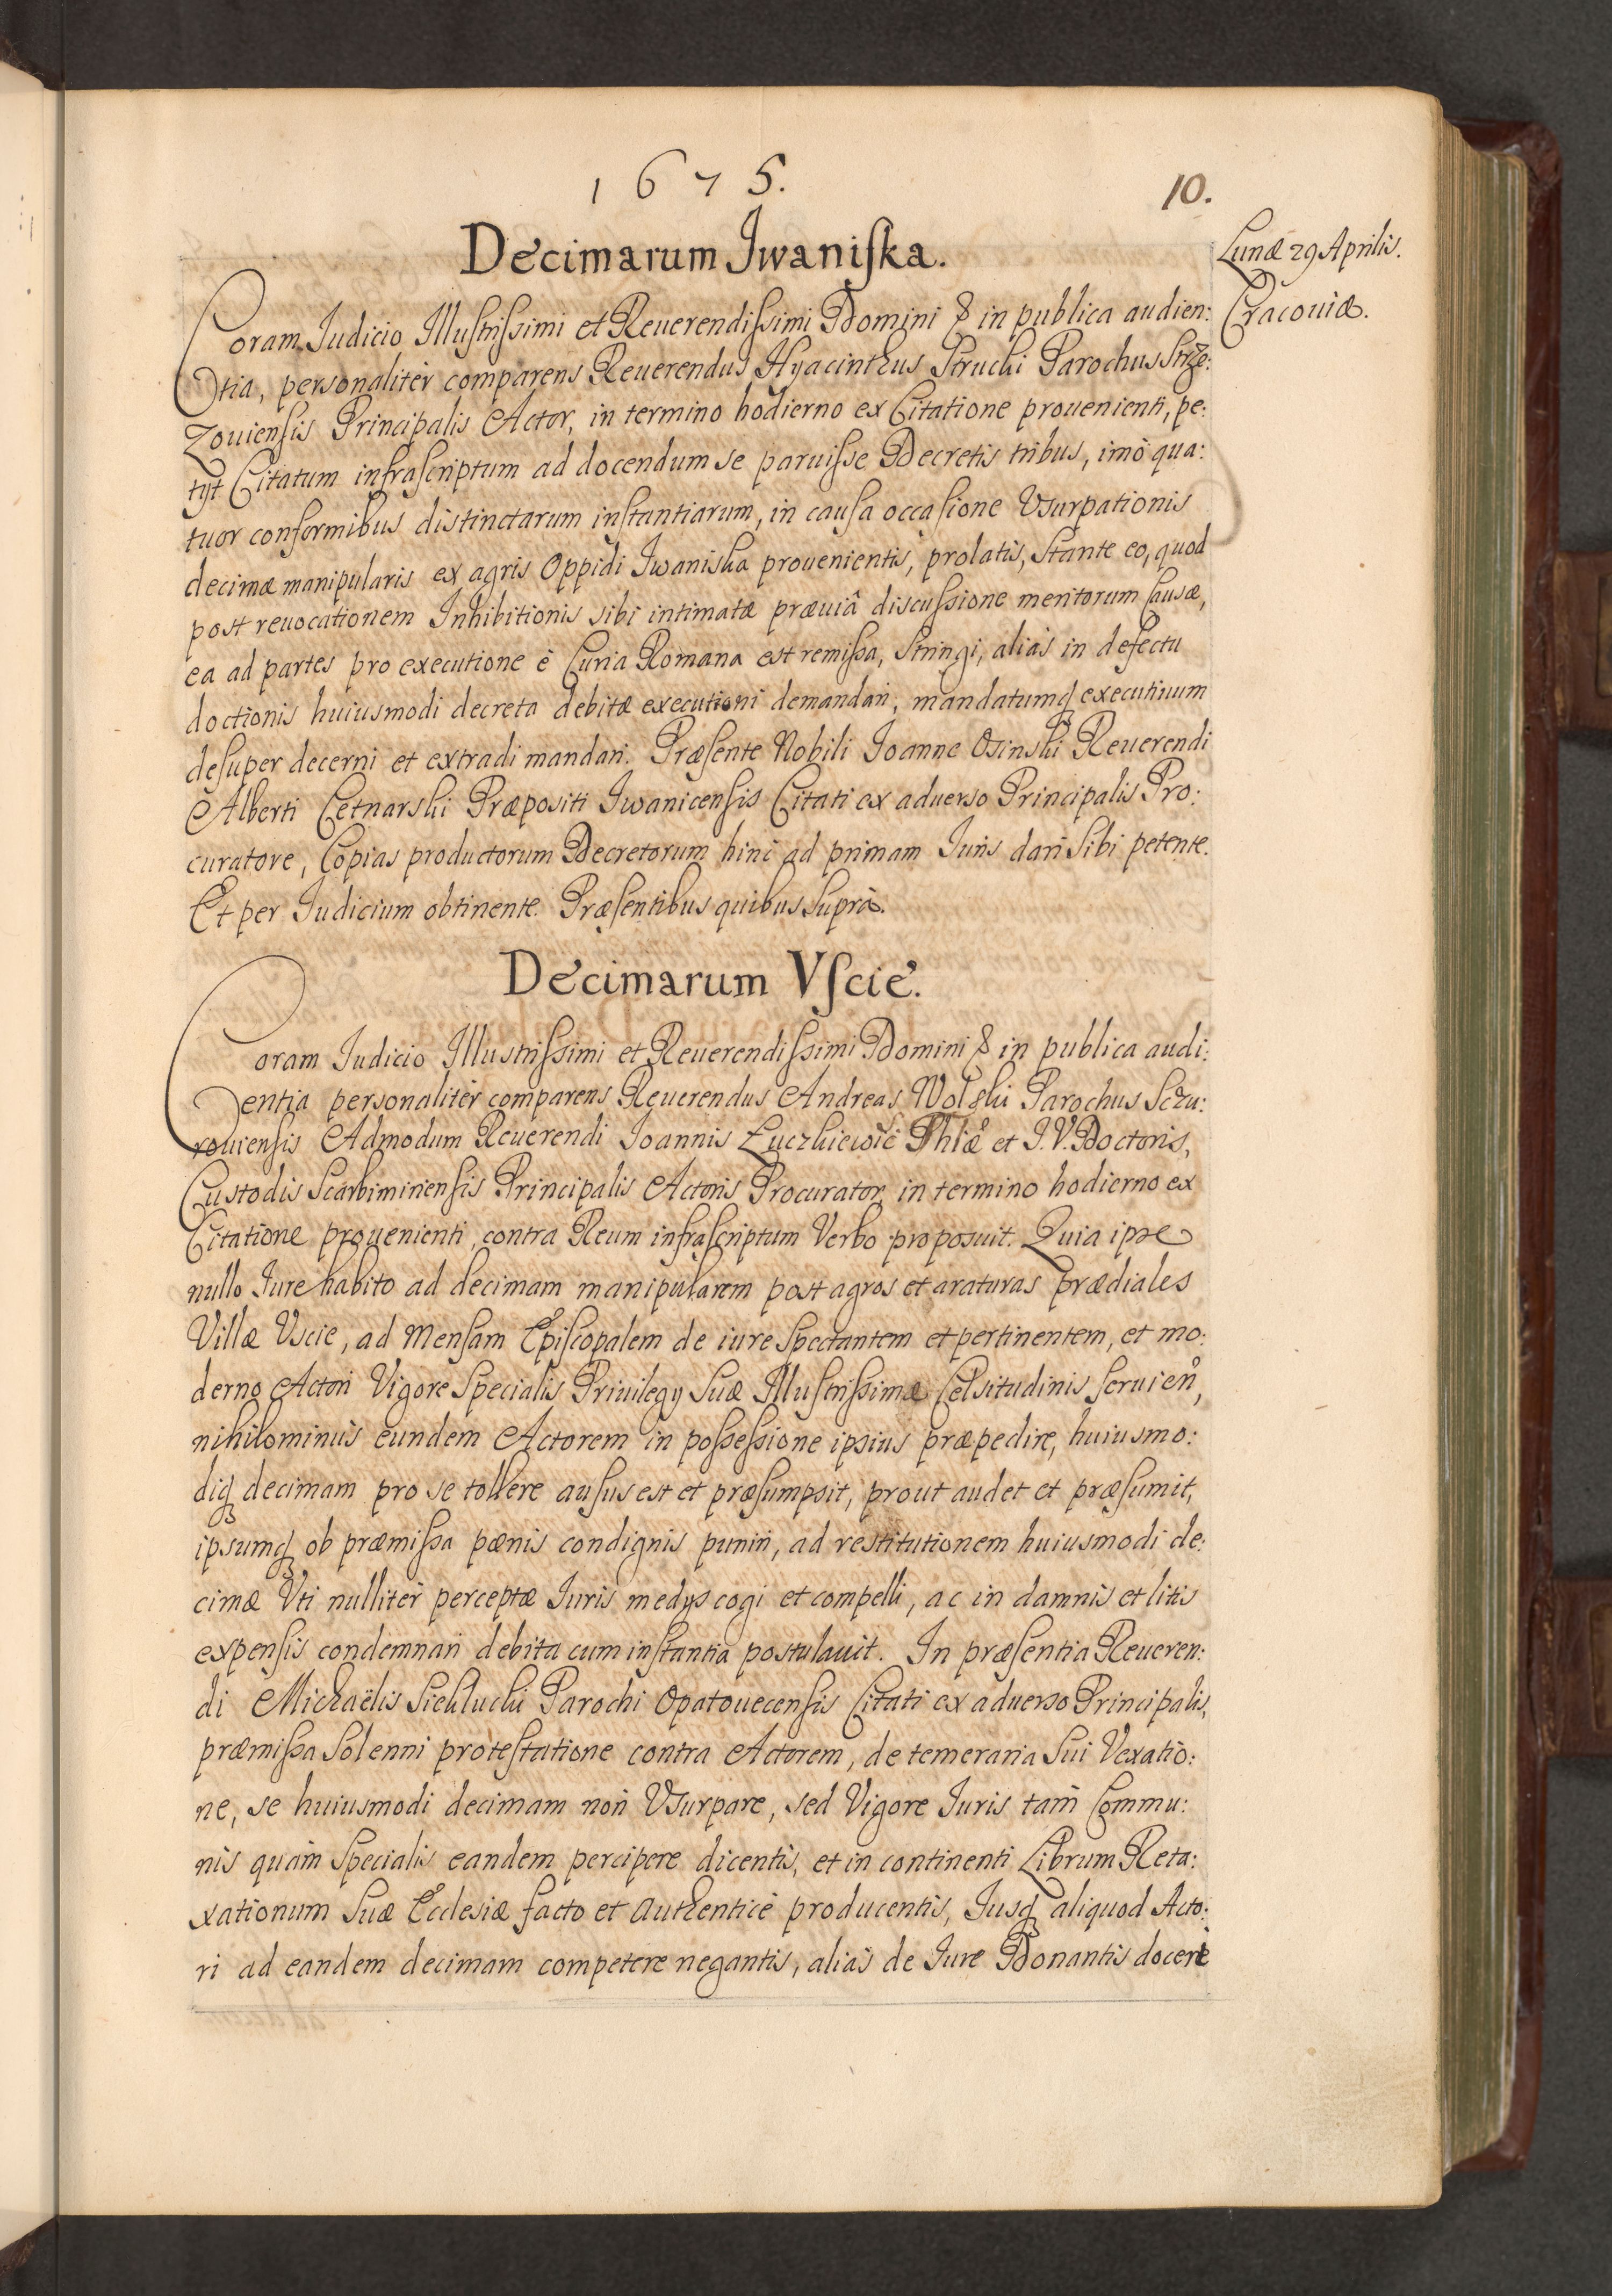 1675.
10.
Decimarum Jwaniſka.
Lunæ 29 Aprilis.
Cracoviæ.
Coram Judicio Illuſtriſsimi et Reuerendiſsimi Domini & in publica audien:
tia, personalitèr comparens Reuerendus Hyacinthus Pruchi Parochus Strze:
zouiensis Principalis Actor, in termino hodierno ex Citatione prouenienti, pe:
tyt Citatum infraſcriptum ad docendum se paruiſse Decretis tribus, imò qua:
tuor conformibus distinctarum inſtantiarum, in cauſa occaſione Vsurpationis
decimæ manipularis ex agris Oppidi Jwaniska prouenientis, prolatis, Stante eo, quod
post reuocationem Inhibitionis sibi intimatæ præuiâ discuſsione meritorum Causæ,
ea ad partes pro executione è Curia Romana est remiſsa, Stringi, aliàs in defectu
doctionis huiusmodi decreta debitæ executioni demandari, mandatumq executiuum
deſuper decerni et extradi mandari. Præſente Nobili Joanne Osinski Reuerendi
Alberti Cetnarski Præpositi Jwanicenſis Citati ex aduerso Principalis Pro:
curatore, Copias productorum Decretorum hinc ad primam Juris dari Sibi petente.
Et per Judicium obtinente. Præſentibus quibus Suprà.
Decimarum Vſcie.
Coram Judicio Illustriſsimi et Reuerendiſsimi Domini & in publica audi:
entia personalitèr comparens Reuerendus Andreas Wolski Parochus Sczu:
rouiensis Admodum Reuerendi Joannis Łuczkiewic Phiæ et J. V. Doctoris,
Custodis Scarbimirienſis Principalis Actoris Procurator, in termino hodierno ex
Citatione prouenienti, contra Reum infraſcriptum Verbo proposuit. Quia ipse
nullo Jure habito ad decimam manipularem post agros et araturas prædiales
Villæ Vscie, ad Mensam Epiſcopalem de iure Spectantem et pertinentem, et mo:
derno Actori Vigore Specialis Priuilegy Suæ Illuſtriſsimæ Celsitudinis Seruien,
nihilominùs eundem Actorem in poſseſsione ipsius præpedire, huiusmo:
diq decimam pro se tollere auſus est et præſumpsit, prout audet et præſumit,
ipsumq ob præmiſsa pænis condignis puniri, ad restitutionem huiusmodi de:
cimæ Vti nullitèr perceptæ Juris medys cogi et compelli, ac in damnis et litis
expenſis condemnari debita cum inſtantia postulauit. In præſentia Reueren:
di Michaëlis Siekłucki Parochi Opatouecenſis Citati ex aduerso Principalis,
præmiſsa Solenni proteſtatione contra Actorem, de temeraria Sui Vexatio:
ne, se huiusmodi decimam non Vsurpare, sed Vigore Juris tam Commu:
nis quàm Specialis eandem percipere dicentis, et in continenti Librum Reta:
xationum Suæ Eccleſiæ facto et Authenticè producentis, Jusq aliquod Acto:
ri ad eandem decimam competere negantis, aliàs de Jure Donantis docere